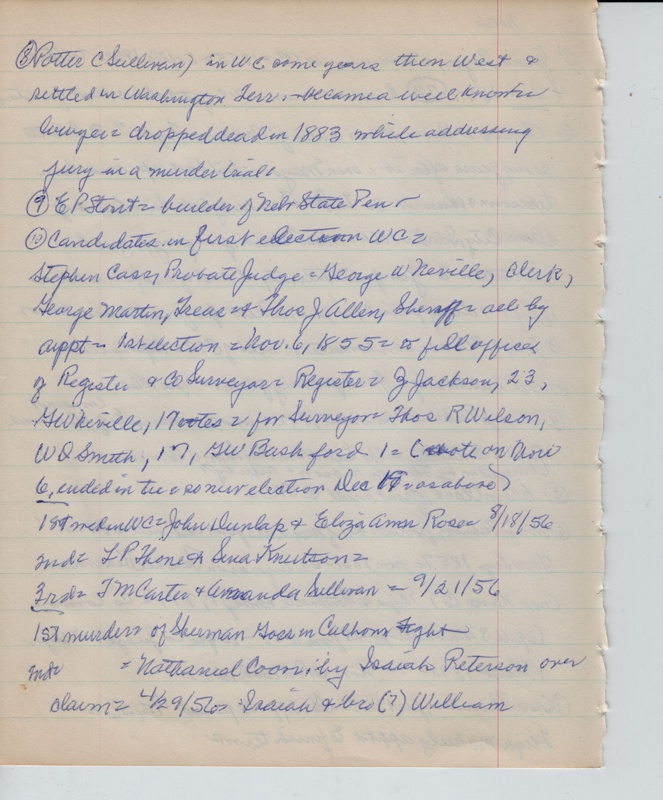 ⑧ Potter C Sullivan) in WC some years then West &
settled in Washington Terr - became a well known
lawyer = dropped dead in 1883 while addressing
jury in a murder trial
⑨ E P Stout = builder of Nebr State Pen -
⑩ Candidates in first election WC =
Stephen Cass, Probate Judge = George W Neville, Clerk,
George Martin, Treas = & Thos J Allen, Sheriff = all by
appt = 1st election = Nov. 6, 1855 = to fill offices
of Register & Co Surveyor = Register = Z Jackson, 23,
G W Neville, 17 votes = for Surveyor = Thos R Wilson,
W D Smith, 17, G W Bashford 1 = ( vote on Nov
6, ended in tie = so new election Dec 17 as above)
1st med in WC = John Dunlap & Eliza Ann Rose = 8/18/56
2nd = L P Thone & Sena Knutson =
3rd = T M Carter & Amanda Sullivan = 9/21/56
1st murder = of Sherman Goss in Calhoun Fight
2nd = = Nathaniel Coon; by Isaiah Peterson over
claim = 4/29/56 = Isaiah & bro (?) William